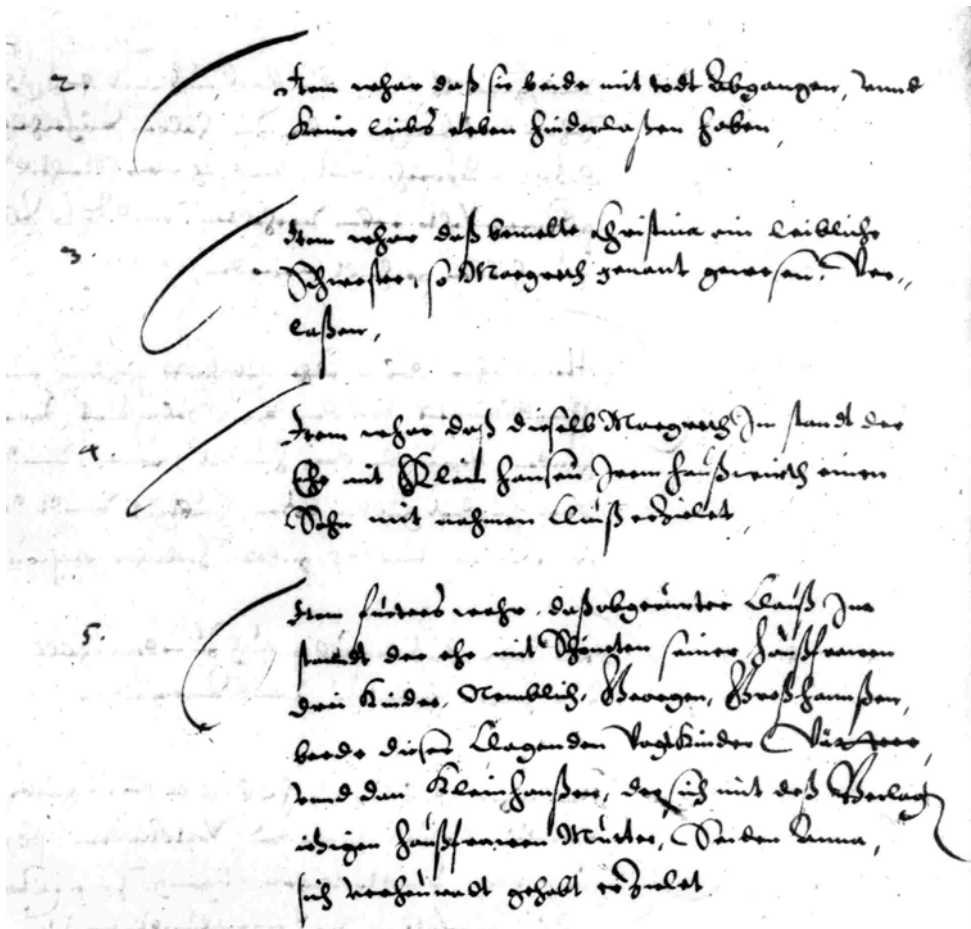 2.
Item wahar daß sie beide mit todt Abgangen, vnnd
Keine leibs erben hinderlaßen haben,
3.
Item wahar daß bemelte Christina ein leibliche
Schwester, so Margreth genant gewesen, Ver,,
laßen,
4.
Item wahar daß dieselb Margreth Jm standt der
Ehe mit Klein hansen Jrem haußwirth einen
Sohn mit nahmen Clauß erzielet
5.
Item fürters wahr, daß obgenanter Clauß Jm
standt der ehe mit seiner haußfrawen
drei Kinder, Nemblich, Georgen, Großhannßen,
beede dieser Clagenden VogtKinder Vätter,
vnnd dan Kleinhanßen, der sich mit deß Beclag
itzigen haußfrawen Mutter, Anna,
sich verheuradt gehabt erzielet